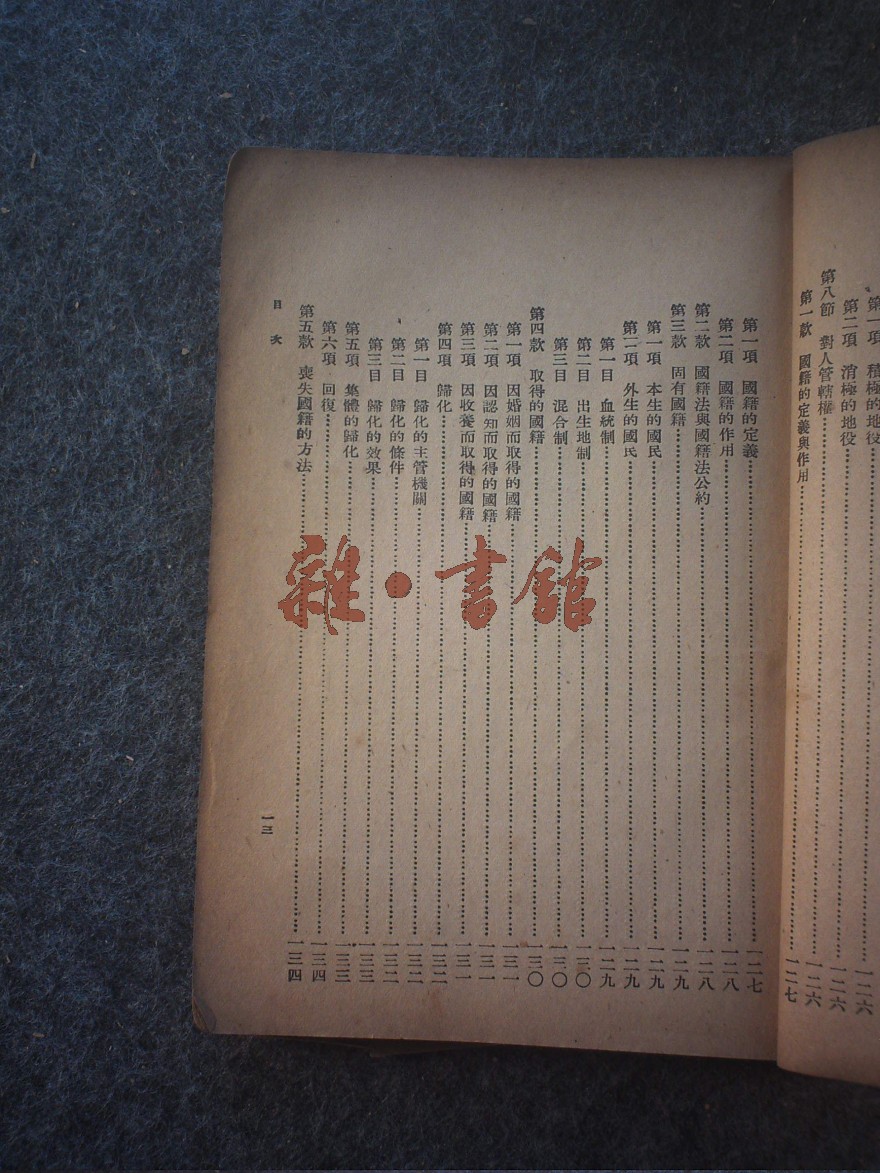 第一項 積極的地役……一二六
第二項 消極的地役……一二六
第八節 對人管轄權……一二六
第一款 國籍的定義與作用……一二七
第一項 國籍的定義……一二七
第二項 國籍的作用……一二八
第二款 國籍法與國籍法公約……一二八
第三款 固有國籍……一二九
第一項 本生的國民……一二九
第二項 外生的國民……一二九
第一目 血統制……一二九
第二目 出生地制……一三〇
第三目 混合制……一三〇
第四款 取得的國籍……一三〇
第一項 因婚姻而取得的國籍……一三一
第二項 因認知而取得的國籍……一三一
第三項 因收養而取得的國籍……一三一
第四項 歸化……一三二
第一目 歸化的主管機關……一三二
第二目 歸化的條件……一三二
第三目 歸化的效果……一三三
第五項 集體的歸化……一三三
第六項 回復……一三四
第五款 喪失國籍的方法……一三四
目次 一三
雜·書館